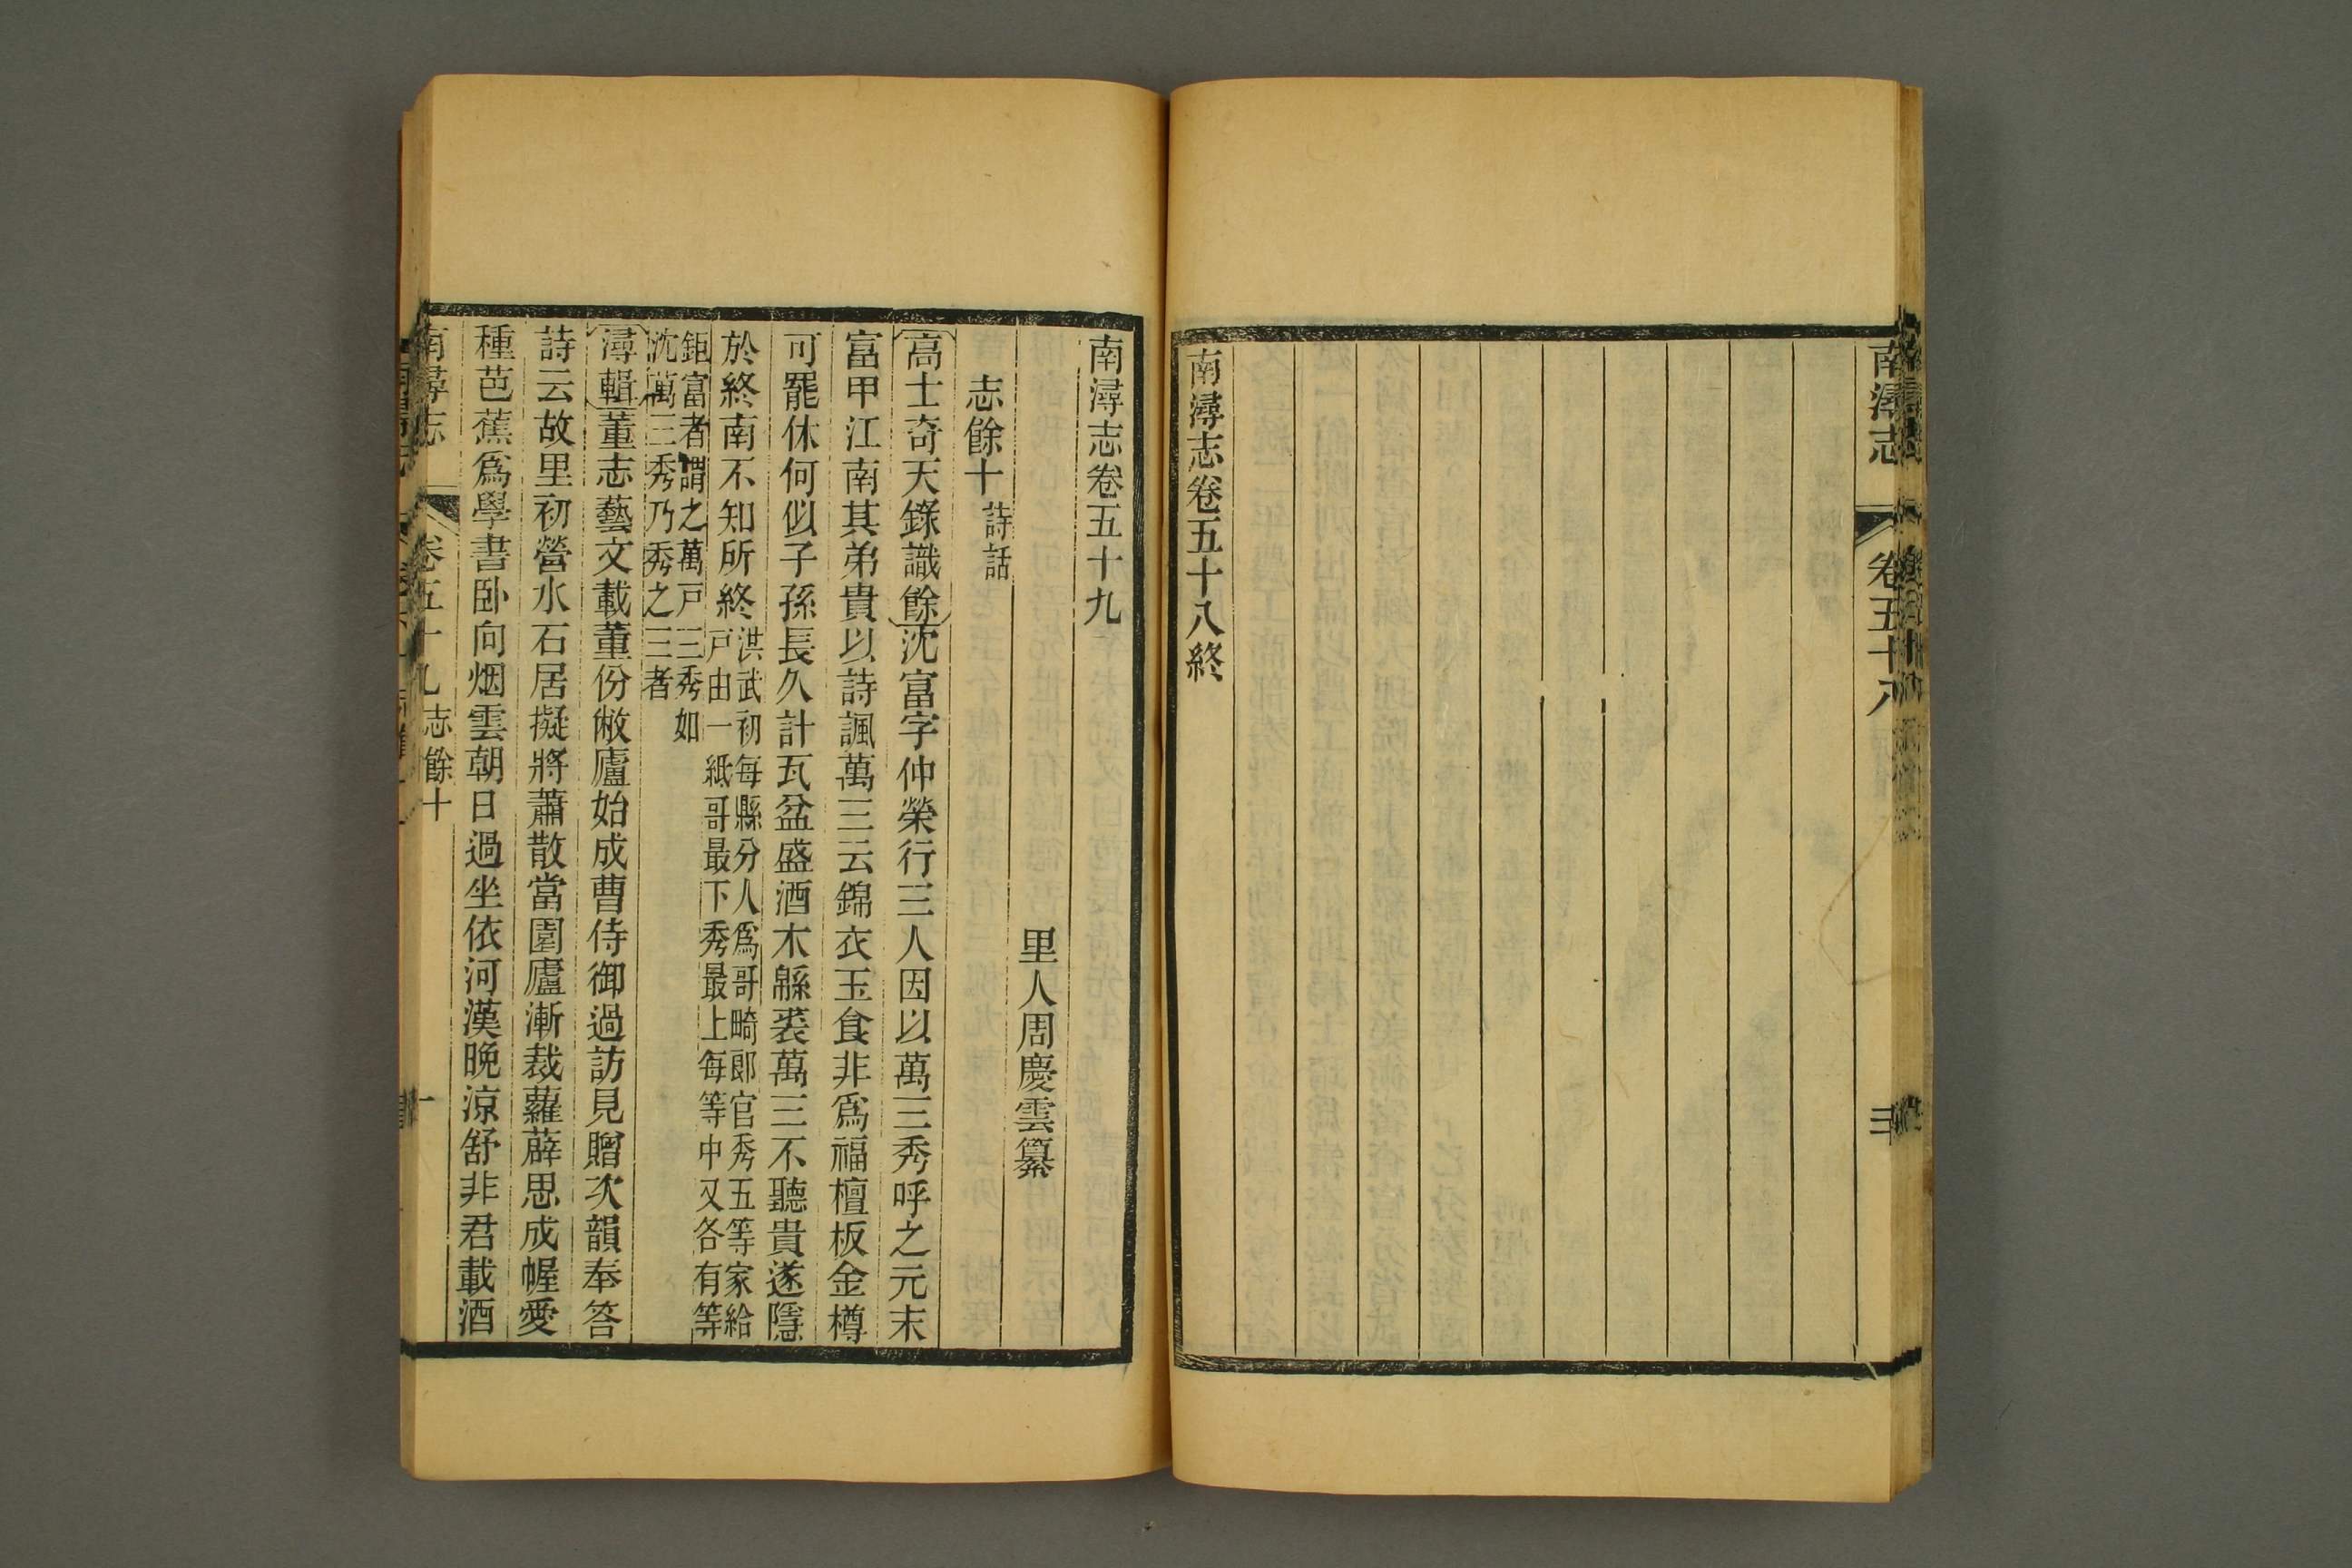 南潯志
卷五十八
南潯志卷五十八終
南潯志卷五十九
里人周慶雲纂
志餘十 詩話
高士奇天錄識餘沈富字仲榮行三人因以萬三秀呼之元末
富甲江南其弟貴以詩諷萬三云錦衣玉食非爲福檀板金樽
可罷休何似子孫長久計瓦盆盛酒木緜裘萬三不聽貴遂隱
於終南不知所終
洪武初每縣分人爲哥畸郎官秀五等家給
戶由一紙哥最下秀最上每等中又各有等
鉅富者謂之萬戶三秀如
沈萬三秀乃秀之三者
潯輯董志藝文載董份敝廬始成曹侍御過訪見贈次韻奉答
詩云故里初營水石居擬將蕭散當園廬漸裁蘿薜思成幄愛
種芭蕉爲學書卧向烟雲朝日過坐依河漢晚涼舒非君載酒
南潯志
卷五十九 志餘十
一